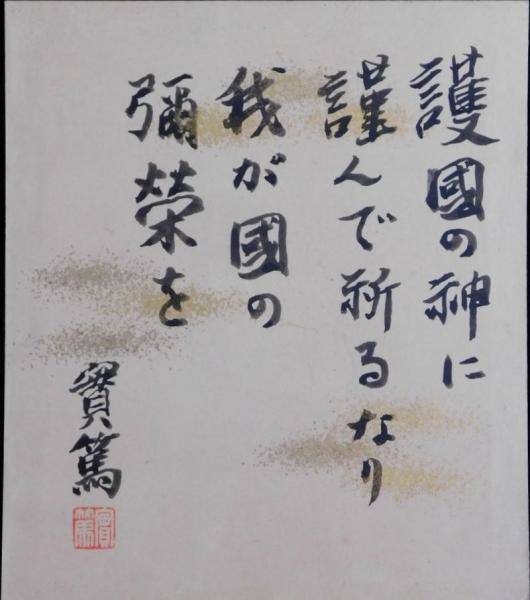 護國の神に
謹んで祈るなり
我が國の
彌榮を
實篤
實篤